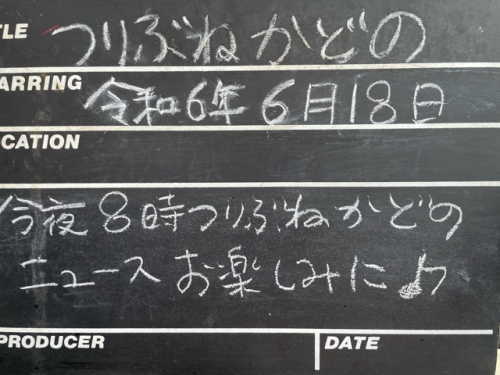 TLE つりぶねかどの
ARRING 令和6年 6月18日
CATION
今夜8時つりぶねかどの
ニュースお楽しみに♪
PRODUCER DATE